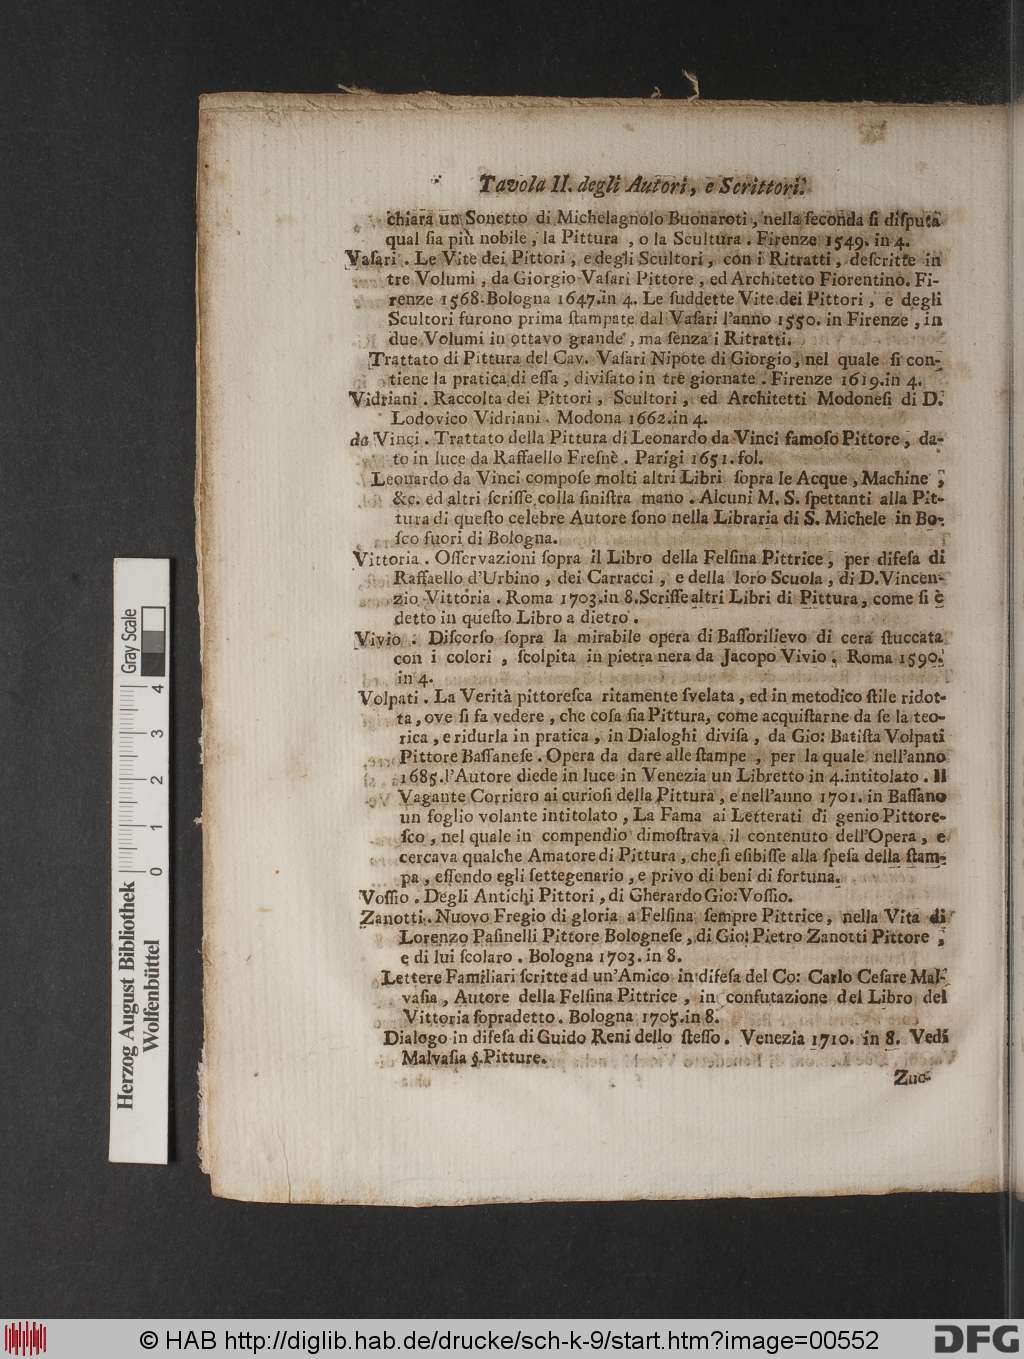 Tavola II. degli Autori, e Scrittori.
chiara un Sonetto di Michelagnolo Buonaroti, nella ſeconda ſi diſputa
qual ſia più nobile, la Pittura, o la Scultura. Firenze 1549. in 4.
Vaſari. Le Vite dei Pittori, e degli Scultori, con i Ritratti, deſcritte in
tre Volumi, da Giorgio Vaſari Pittore, ed Architetto Fiorentino. Fi-
renze 1568. Bologna 1647. in 4. Le ſuddette Vite dei Pittori, e degli
Scultori furono prima ſtampate dal Vaſari l'anno 1550. in Firenze, in
due Volumi in ottavo grande, ma ſenza i Ritratti.
Trattato di Pittura del Cav. Vaſari Nipote di Giorgio, nel quale ſi con-
tiene la pratica di eſſa, diviſato in tre giornate. Firenze 1619. in 4.
Vidriani. Raccolta dei Pittori, Scultori, ed Architetti Modoneſi di D.
Lodovico Vidriani. Modona 1662. in 4.
da Vinci. Trattato della Pittura di Leonardo da Vinci famoſo Pittore, da-
to in luce da Raffaello Freſnè. Parigi 1651. fol.
Leonardo da Vinci compoſe molti altri Libri ſopra le Acque, Machine,
&c. ed altri ſcriſſe colla ſiniſtra mano. Alcuni M. S. ſpettanti alla Pit-
tura di queſto celebre Autore ſono nella Libraria di S. Michele in Bo-
ſco fuori di Bologna.
Vittoria. Oſſervazioni ſopra il Libro della Felſina Pittrice, per difeſa di
Raffaello d'Urbino, dei Carracci, e della loro Scuola, di D. Vincen-
zio Vittoria. Roma 1703. in 8. Scriſſe altri Libri di Pittura, come ſi è
detto in queſto Libro a dietro.
Vivio. Diſcorſo ſopra la mirabile opera di Baſſorilievo di cera ſtuccata
con i colori, ſcolpita in pietra nera da Jacopo Vivio. Roma 1590.
in 4.
Volpati. La Verità pittoreſca ritamente ſvelata, ed in metodico ſtile ridot-
ta, ove ſi fa vedere, che coſa ſia Pittura, come acquiſtarne da ſe la teo-
rica, e ridurla in pratica, in Dialoghi diviſa, da Gio: Batiſta Volpati
Pittore Baſſaneſe. Opera da dare alle ſtampe, per la quale nell'anno
1685. l'Autore diede in luce in Venezia un Libretto in 4. intitolato. Il
Vagante Corriero ai curioſi della Pittura, e nell'anno 1701. in Baſſano
un foglio volante intitolato, La Fama ai Letterati di genio Pittore-
ſco, nel quale in compendio dimoſtrava il contenuto dell'Opera, e
cercava qualche Amatore di Pittura, che ſi eſibiſſe alla ſpeſa della ſtam-
pa, eſſendo egli ſettegenario, e privo di beni di fortuna.
Voſſio. Degli Antichi Pittori, di Gherardo Gio: Voſſio.
Zanotti. Nuovo Fregio di gloria a Felſina ſempre Pittrice, nella Vita di
Lorenzo Paſinelli Pittore Bologneſe, di Gio: Pietro Zanotti Pittore,
e di lui ſcolaro. Bologna 1703. in 8.
Lettere Familiari ſcritte ad un'Amico in difeſa del Co: Carlo Ceſare Mal-
vaſia, Autore della Felſina Pittrice, in confutazione del Libro del
Vittoria ſopradetto. Bologna 1705. in 8.
Dialogo in difeſa di Guido Reni dello ſteſſo. Venezia 1710. in 8. Vedi
Malvaſia §. Pitture.
Zuc-
Herzog August Bibliothek
Wolfenbüttel
Gray Scale
0 1 2 3 4
© HAB http://diglib.hab.de/drucke/sch-k-9/start.htm?image=00552
DFG